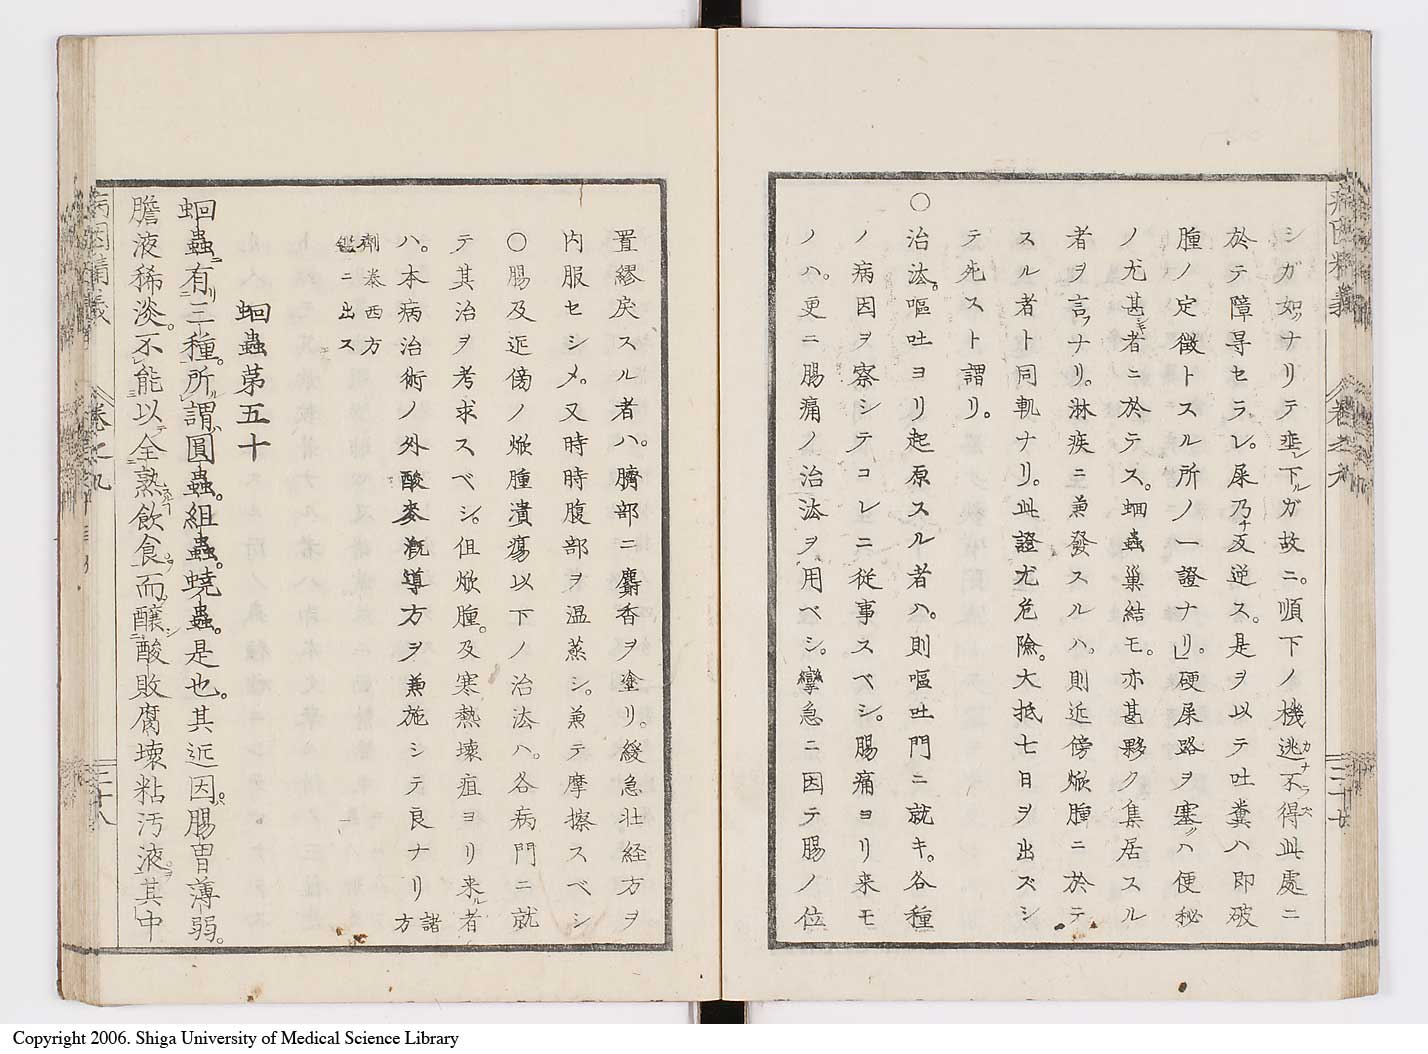 シガ如ツナリテ垂シ下ルガ故ニ。順下ノ機迯カナラズ不得此處ニ
於テ障㝵セラレ。屎乃ナ反逆ス。是ヲ以テ吐糞ハ即破
腫ノ定徴トスル所ノ一證ナリ」。硬屎路ヲ塞ツハ便秘
ノ尤甚シキ者ニ於テス。蛔蟲巢結モ。亦甚夥ク集居スル
者ヲ言フナリ。淋疾ニ兼發スルハ。則近傍焮腫ニ於テ
スル者ト同軌ナリ。此證尤危險。大抵七日ヲ出ズシ
テ死スト謂リ。
〇治法。嘔吐ヨリ起原スル者ハ。則嘔吐門ニ就キ。各種
ノ病因ヲ察シテコレニ従事スベシ。腸痛ヨリ来モ
ノハ。更ニ腸痛ノ治法ヲ用ベシ。攣急ニ因テ腸ノ位
置繆戻スル者ハ。臍部ニ麝香ヲ塗リ。緩急壮経方ヲ
内服セシメ。又時時腹部ヲ温蒸シ。兼テ摩擦スベシ
〇腸及近傍ノ焮腫潰瘍以下ノ治法ハ。各病門ニ就
テ其治ヲ考求スベシ。但焮腫。及寒熱壊疽ヨリ来ル者
ハ。本病治術ノ外酸麥漑導方ヲ兼施シテ良ナリ諸方
劑泰西方
鑑ニ出ス
蛔蟲第五十
蛔蟲ニ有リ三種。所謂圓蟲。組蟲。蟯蟲。是也。其近因。腸胃薄弱。
膽液稀淡。不能以全熟飲食而醸酸敗腐壊粘汚液。其中
病因精義
巻之九
二十七
病因精義
巻之九
二十八
Copyright 2006. Shiga University of Medical Science Library